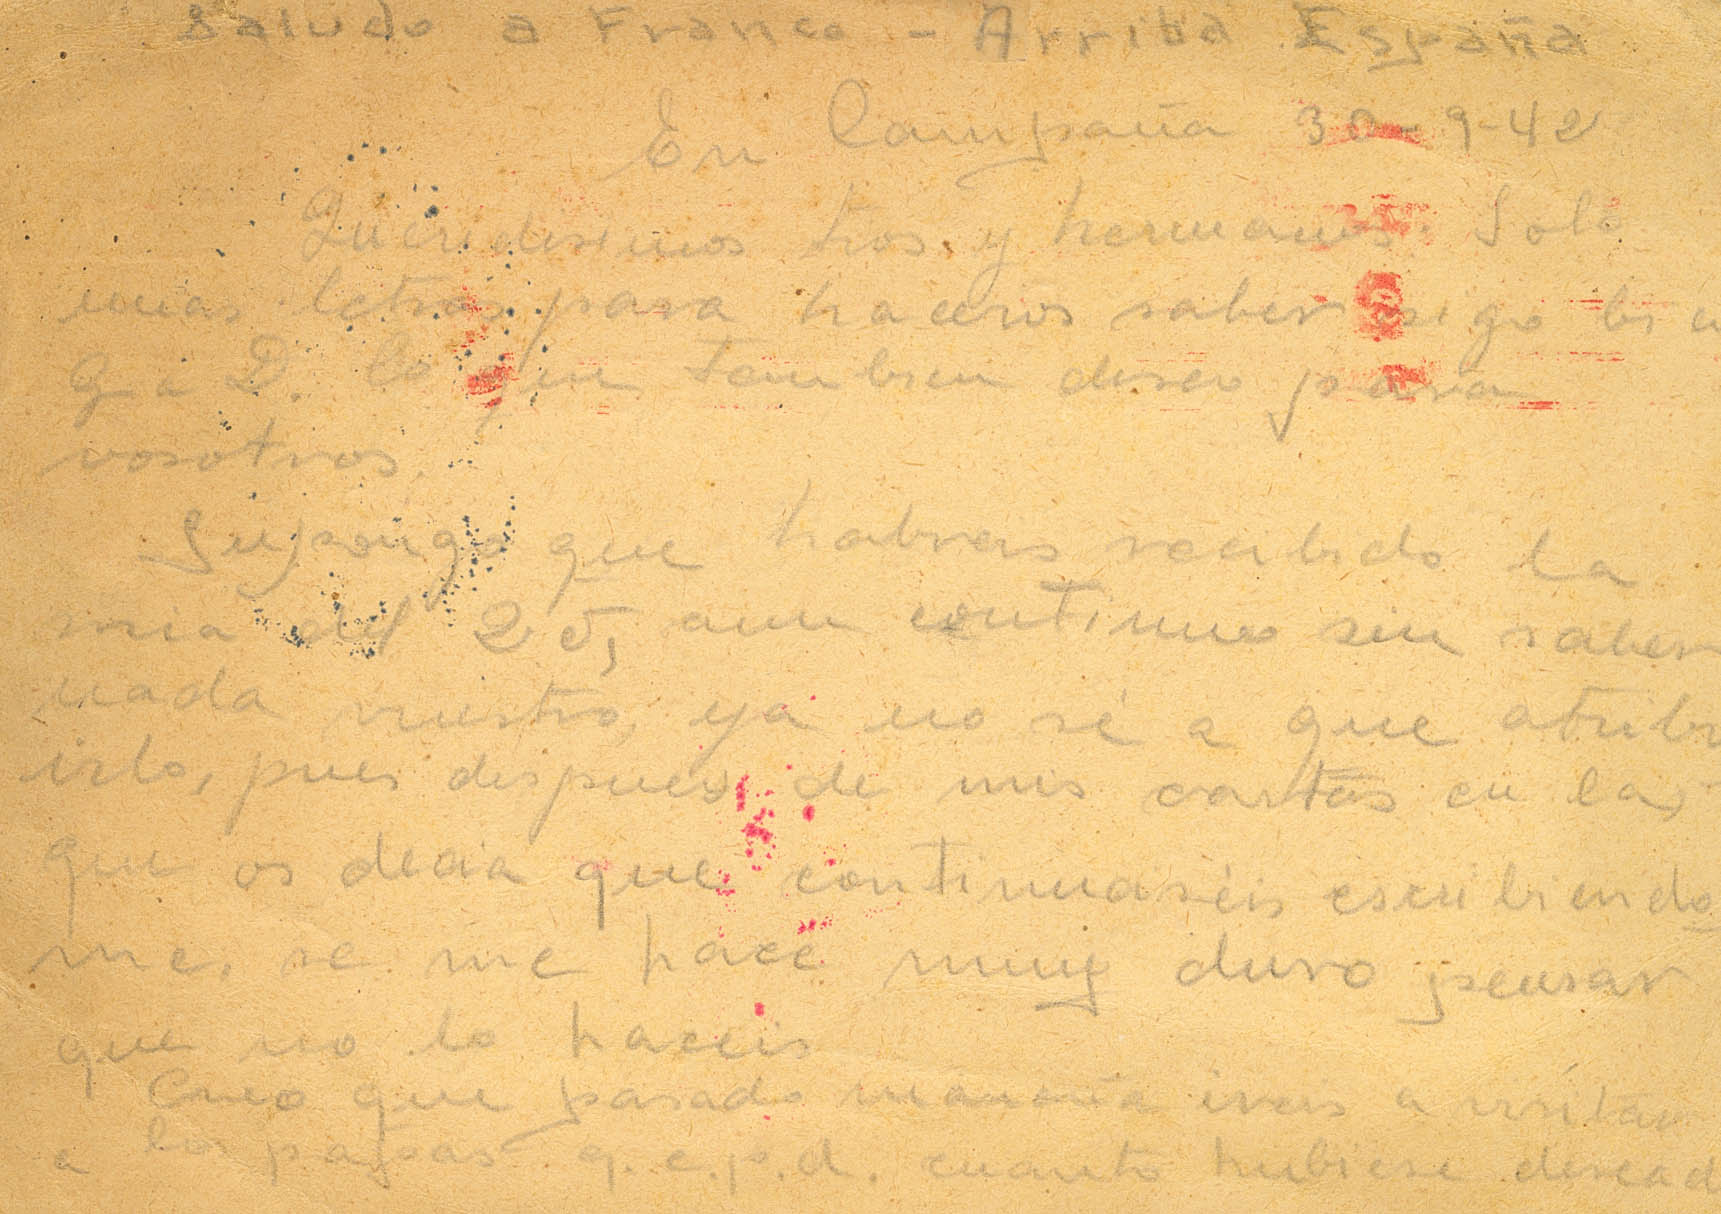 Saludo a Franco - Arriba España
En Campaña 30-9-42
Queridisimos tios y hermanos: Solo
unas letras para haceros saber sigo bien
G. a D. lo que tambien deseo para
vosotros.
Supongo que habreis recibido la
mia del 25, aun continuo sin saber
nada vuestro, ya no sé a que atribu
irlo, pues despues de mis cartas en las
que os decia que continuaséis escribiendo
me, se me hace muy duro pensar
que no lo haceis
Creo que pasado mañana ireis a visitar
a los papas q.e.p.d. cuanto hubiese desead